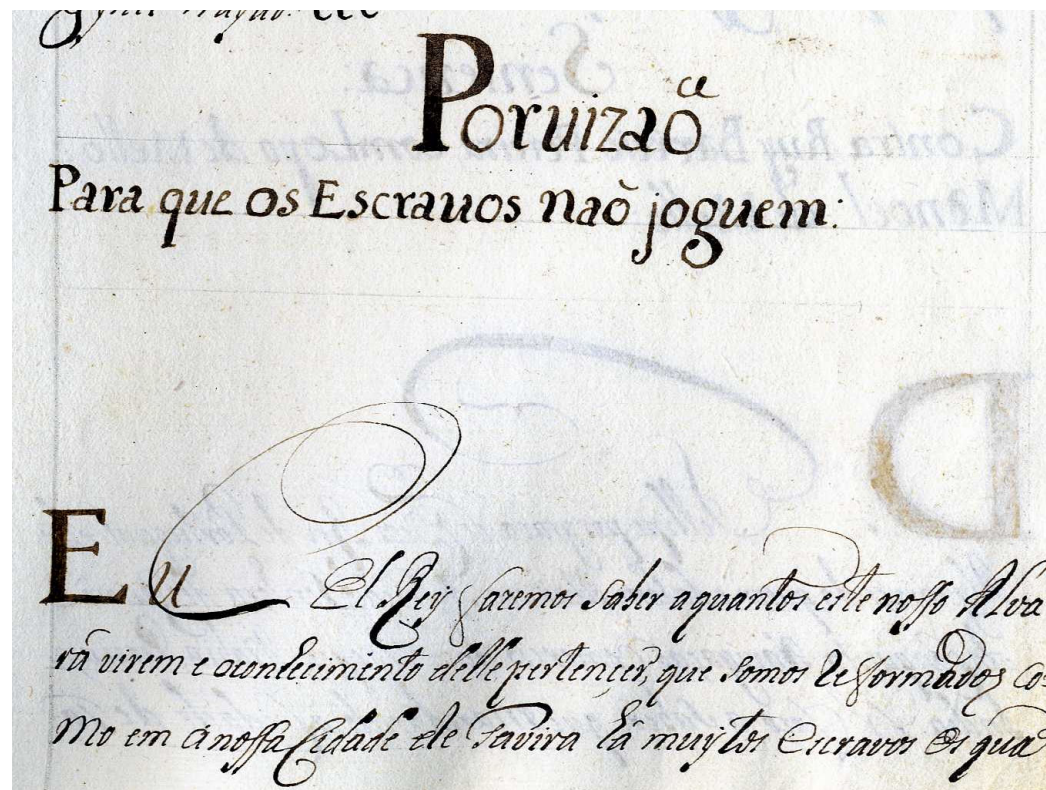 Poruizaõ
Para que os Escrauos naõ joguem:
Eu El Rey faremos saber aquantos este nosso Alva
râ virem e oconhecimento delle pertencer, que somos Jeformados co=
mo em anossa Cidade de Tavira hâ muytos Escravos Os qua